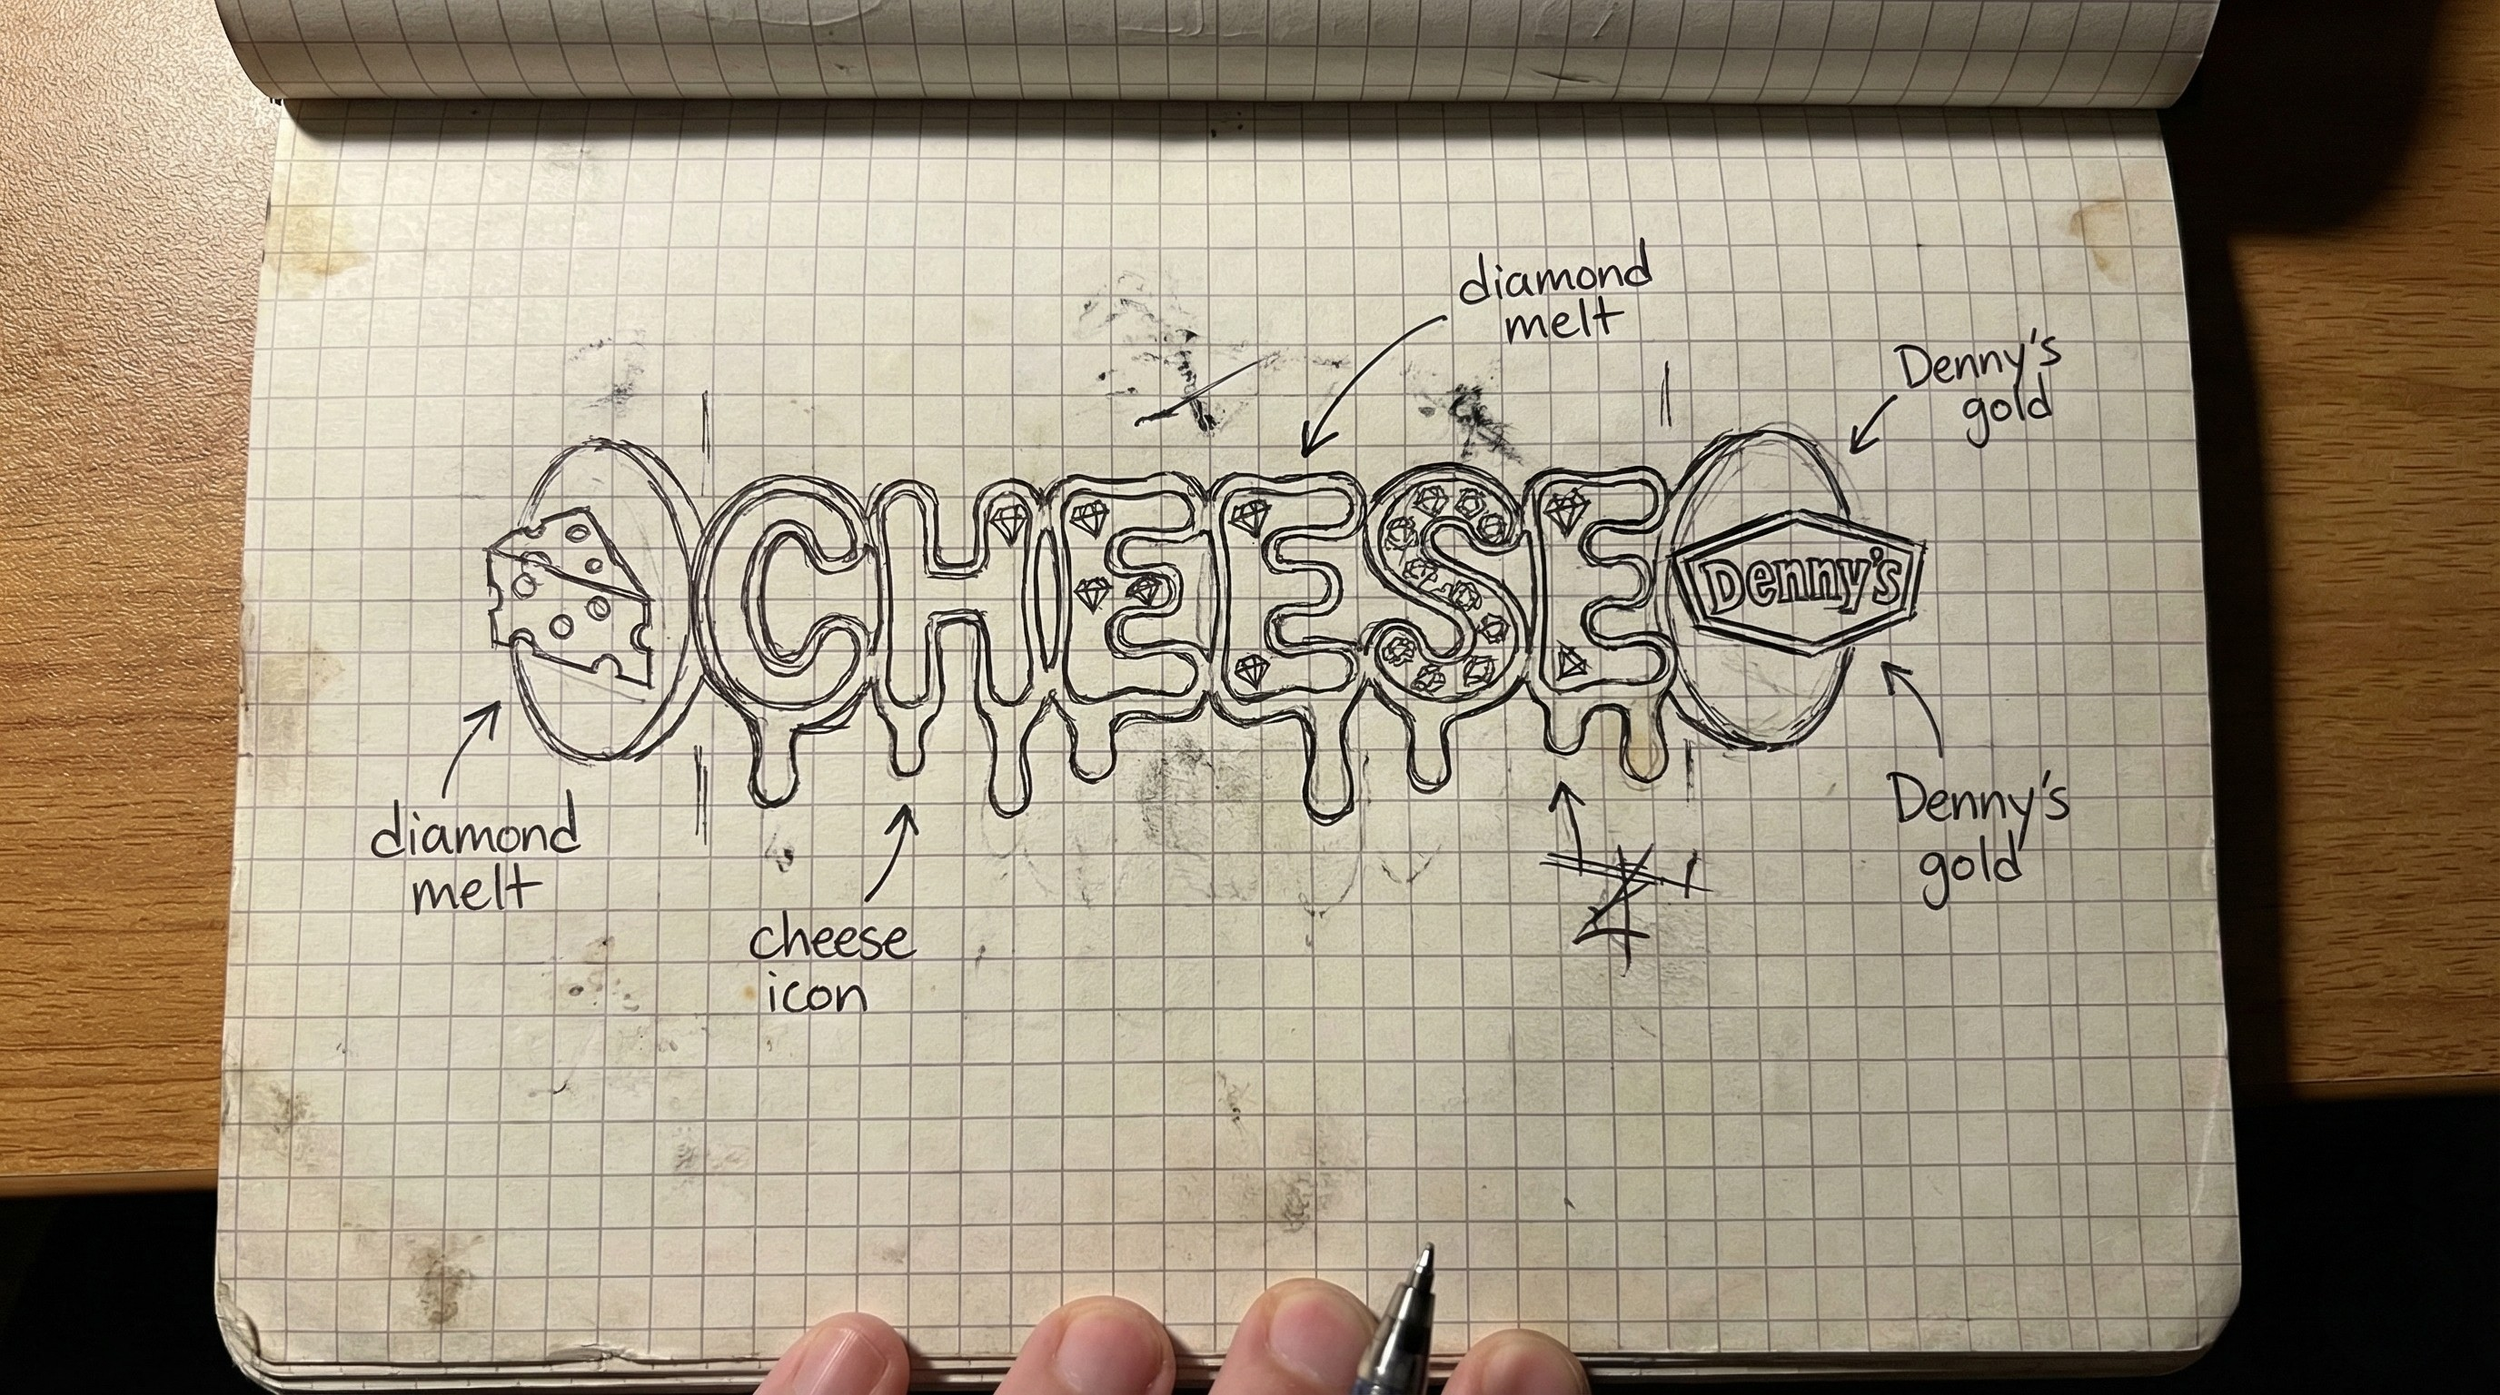 diamond
melt
Denny's
gold
CHEESE
Denny's
diamond
melt
cheese
icon
Denny's
gold